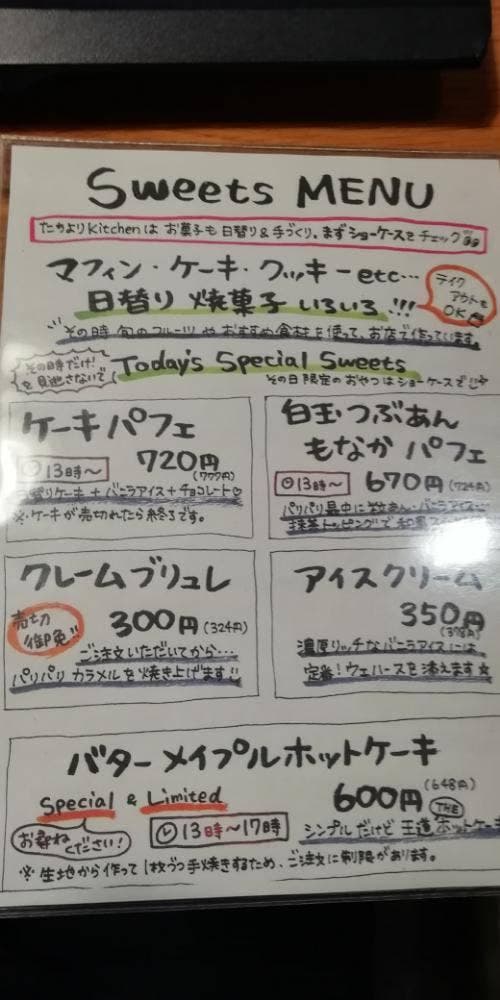 Sweets MENU
たよりKitchenは お菓子も 日替り&手づくり。まずショーケースをチェック
マフィン・ケーキ・クッキー etc…
日替り 焼菓子 いろいろ!!!
テイクアウトもOK
その時 旬のフルーツ や おすすめ食材を使って、お店で作っています。
その時だけ!
を見逃さないで
Today's Special Sweets
その日限定のおやつはショーケースで
ケーキパフェ
13時〜 720円
(777円)
日替りケーキ+バニラアイス+チョコレート♡
※ケーキが売切れたら終了です。
白玉・つぶあん
もなか パフェ
13時〜 670円 (724円)
パリパリ最中に粒あん・バニラアイス…
抹茶トッピングで和風
クレームブリュレ
売切御免!! 300円 (324円)
ご注文いただいてから…
パリパリ カラメルを焼き上げます!!
アイスクリーム
350円
(378円)
濃厚リッチなバニラアイスには
定番!ウェハースを添えます☆
バターメイプルホットケーキ
Special & Limited 600円 (648円)
お尋ねください!
13時〜17時
THE
シンプルだけど 王道ホットケーキ
※生地から作って1枚づつ手焼きするため、ご注文に制限があります。